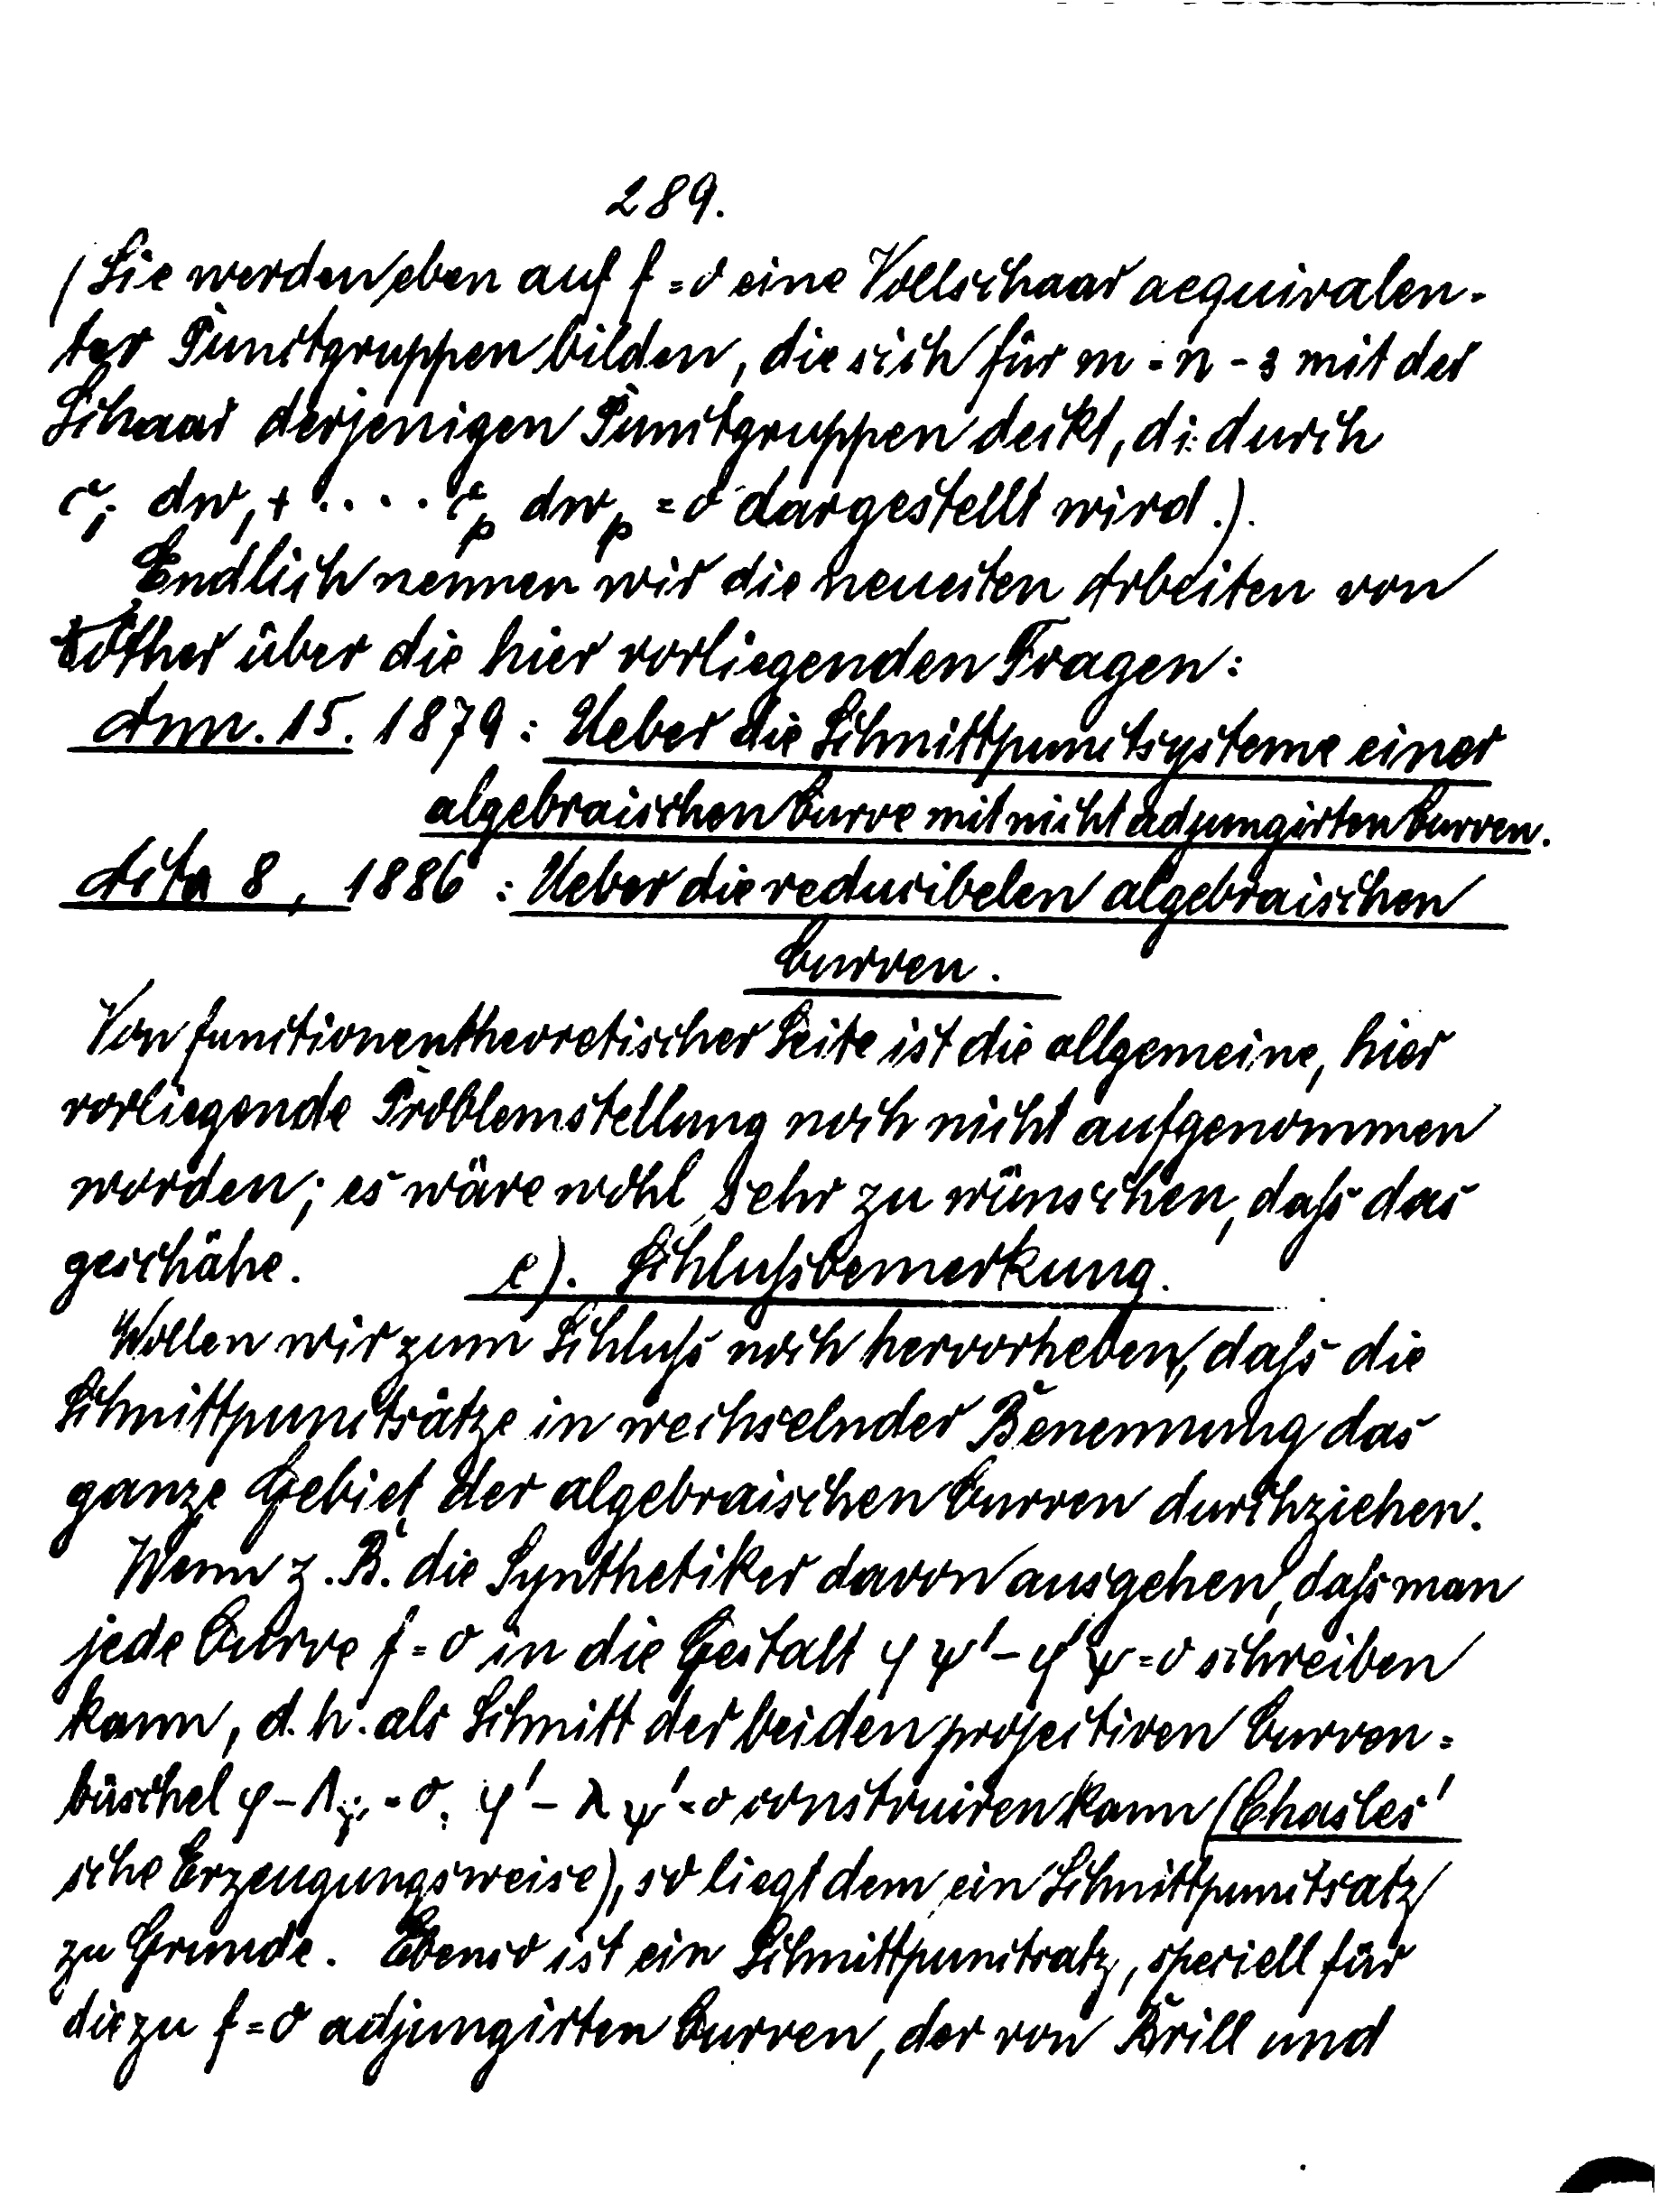 289.
(Sie werden eben auf f = 0 eine Vollschaar aequivalen-
ter Punctgruppen bilden, die sich für m = n - 3 mit der
Schaar derjenigen Punctgruppen deckt, di. durch
c₁ dw₁ + .... cₚ dwₚ = 0 dargestellt wird.).
Endlich nennen wir die neuesten Arbeiten von
Nöther über die hier vorliegenden Fragen:
Ann. 15. 1879: Ueber die Schnittpunctsysteme einer
algebraischen Curve mit nicht adjungirten Curven.
Acta 8, 1886: Ueber die reducibelen algebraischen
Curven.
Von functionentheoretischer Seite ist die allgemeine, hier
vorliegende Problemstellung noch nicht aufgenommen
worden; es wäre wohl sehr zu wünschen, daſs das
geschähe. e). Schluſsbemerkung.
Wollen wir zum Schluſs noch hervorheben, daſs die
Schnittpunctsätze in wechselnder Benennung das
ganze Gebiet der algebraischen Curven durchziehen.
Wenn z. B. die Synthetiker davon ausgehen, daſs man
jede Curve f = 0 in die Gestalt φ ψ' - φ' ψ = 0 schreiben
kann, d. h. als Schnitt der beiden projectiven Curven=
büschel φ - λψ = 0, φ' - λψ' = 0 construiren kann (Chasles'
sche Erzeugungsweise), so liegt dem ein Schnittpunctsatz
zu Grunde. Ebenso ist ein Schnittpunctsatz, speciell für
die zu f = 0 adjungirten Curven, der von Brill und